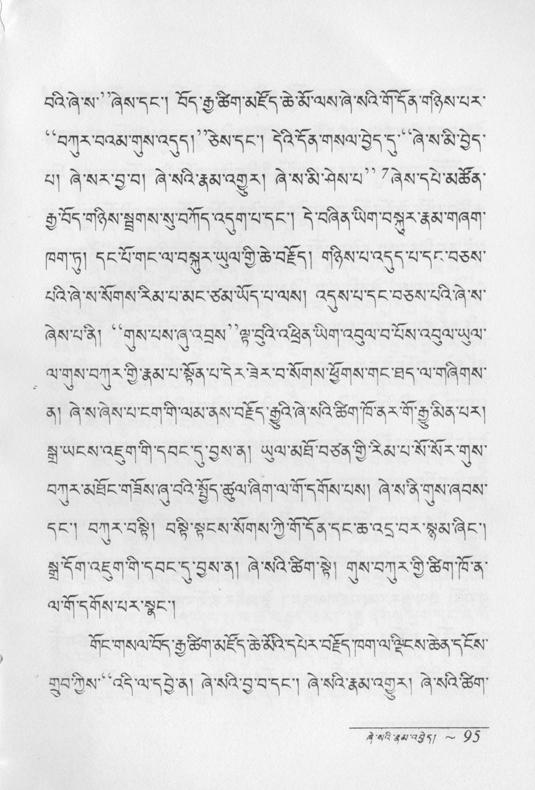 བའི་ཞེ་ས་”ཞེས་དང་། བོད་རྒྱ་ཚིག་མཛོད་ཆེ་མོ་ལས་ཞེ་སའི་གོ་དོན་གཉིས་པར་
“བཀུར་བའམ་གུས་འདུད།”ཅེས་དང་། དེའི་དོན་གསལ་བྱེད་དུ་“ཞེ་ས་མི་བྱེད་
པ། ཞེ་སར་བྱ་བ། ཞེ་སའི་རྣམ་འགྱུར། ཞེ་ས་མི་ཤེས་པ”7ཞེས་དཔེ་མཚོན་
རྒྱ་བོད་གཉིས་སྦྲགས་སུ་བཀོད་འདུག་པ་དང་། དེ་བཞིན་ཡིག་བསྐུར་རྣམ་གཞག་
ཁག་ཏུ། དང་པོ་གང་ལ་བསྐུར་ཡུལ་གྱི་ཆེ་བརྗོད། གཉིས་པ་འདུད་པ་དང་བཅས་
པའི་ཞེ་ས་སོགས་རིམ་པ་མང་ཙམ་ཡོད་པ་ལས། འདུས་པ་དང་བཅས་པའི་ཞེ་ས་
ཞེས་པ་ནི། “གུས་པས་ཞུ་འབྲས”ལྟ་བུའི་འཕྲིན་ཡིག་འབུལ་བ་པོས་འབུལ་ཡུལ་
ལ་གུས་བཀུར་གྱི་རྣམ་པ་སྟོན་པ་དེར་ཟེར་བ་སོགས་ཕྱོགས་གང་ཐད་ལ་གཞིགས་
ན། ཞེ་ས་ཞེས་པ་ངག་གི་ལམ་ནས་བརྗོད་རྒྱུའི་ཞེ་སའི་ཚིག་ཁོ་ནར་གོ་རྒྱུ་མིན་པར།
སྒྲ་ཡངས་འཇུག་གི་དབང་དུ་བྱས་ན། ཡུལ་མཐོ་བཙན་གྱི་རིམ་པ་སོ་སོར་གུས་
བཀུར་མཐོང་གཟོས་ཞུ་བའི་སྤྱོད་ཚུལ་ཞིག་ལ་གོ་དགོས་པས། ཞེ་ས་ནི་གུས་ཞབས་
དང་། བཀུར་བསྟི། བསྟི་སྟངས་སོགས་ཀྱི་གོ་དོན་དང་ཆ་འདྲ་བར་སྙམ་ཞིང་།
སྒྲ་དོག་འཇུག་གི་དབང་དུ་བྱས་ན། ཞེ་སའི་ཚིག་སྟེ། གུས་བཀུར་གྱི་ཚིག་ཁོ་ན་
ལ་གོ་དགོས་པར་སྣང་།
གོང་གསལ་བོད་རྒྱ་ཚིག་མཛོད་ཆེ་མོའི་དཔེར་བརྗོད་ཁག་ལ་ལྡིངས་ཆེན་དངོས་
གྲུབ་ཀྱིས་“འདི་ལ་དབྱེ་ན། ཞེ་སའི་བྱ་བ་དང་། ཞེ་སའི་རྣམ་འགྱུར། ཞེ་སའི་ཚིག་
ཞེ་སའི་རྣམ་འབྱེད། ~ 95